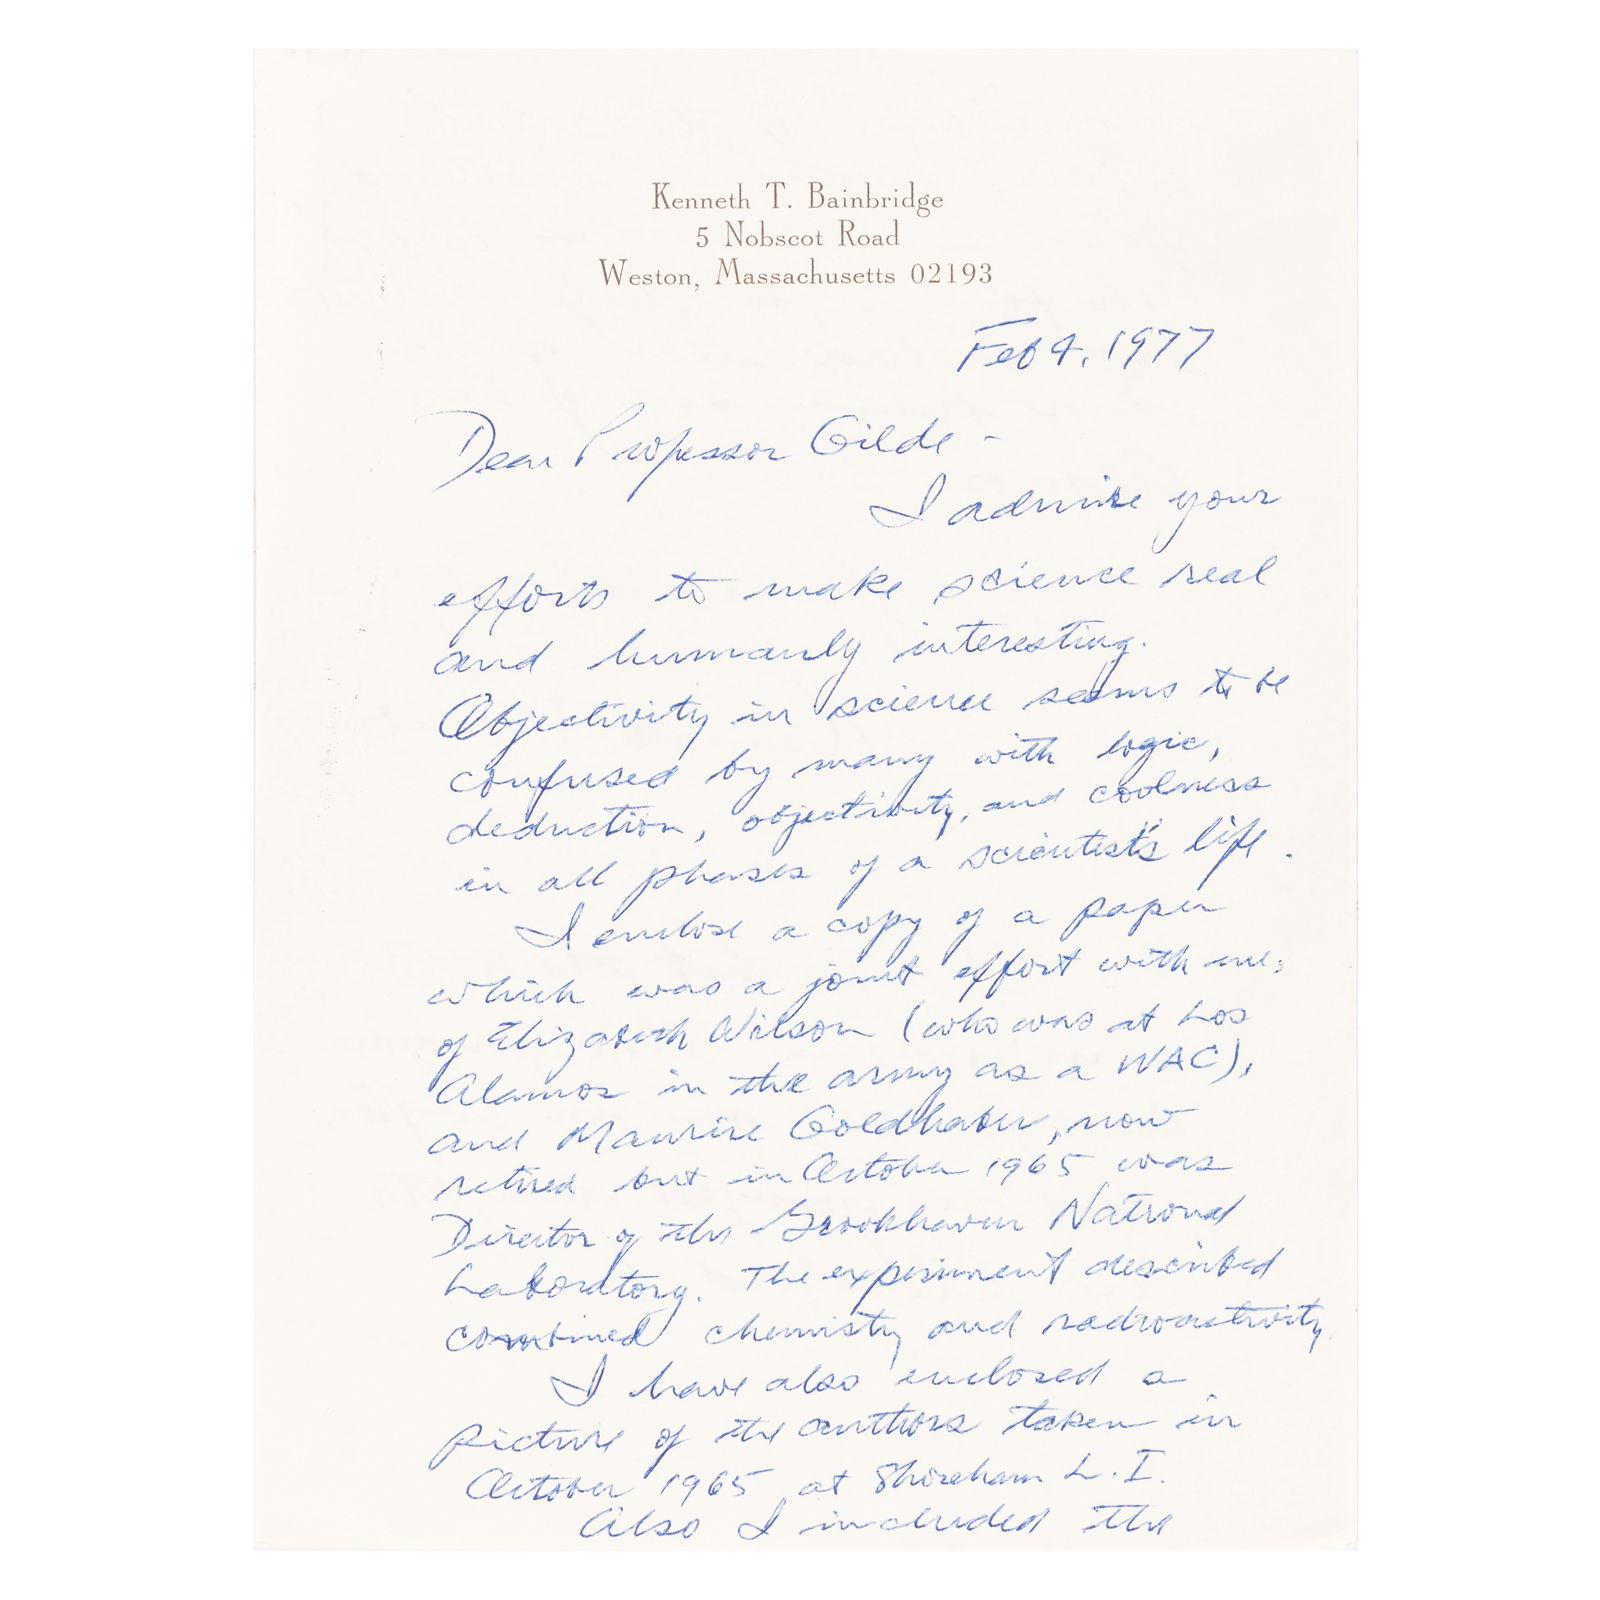 Kenneth T. Bainbridge
5 Nobscot Road
Weston, Massachusetts 02193
Feb 4, 1977
Dear Professor Gilde -
I admire your
efforts to make science real
and humanly interesting.
Objectivity in science seems to be
confused by many with logic,
deduction, objectivity, and coolness
in all phases of a scientist's life.
I enclose a copy of a paper
which was a joint effort with me,
of Elizabeth Wilson (who was at Los
Alamos in the army as a WAC),
and Maurice Goldhaber, now
retired but in October 1965 was
Director of the Brookhaven National
Laboratory. The experiment described
combined chemistry and radioactivity.
I have also enclosed a
picture of the authors taken in
October 1965 at Shoreham L.I.
Also I included the